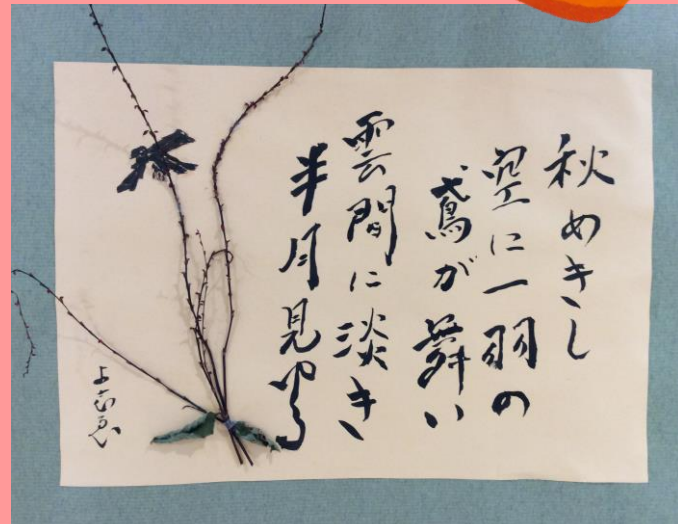 秋めきし
空に一羽の
鳶が舞い
雲間に淡き
半月見ゆる